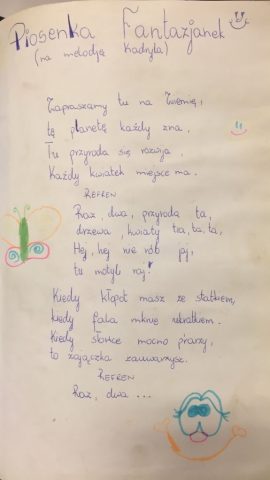 Piosenka Fantazjanek
(na melodię Kadryla)
Zapraszamy tu na Zwienię,
tę planetę każdy zna,
Tu przyroda się rozwija,
Każdy kwiatek miejsce ma.
REFREN
Raz, dwa, przyroda ta,
drzewa, kwiaty tra, ta, ta,
Hej, hej nie rób jej,
tu motyli raj!
Kiedy kłopot masz ze statkiem,
kiedy fala mknie ukratkiem.
Kiedy słońce mocno praży,
to zajączka zauważysz.
REFREN
Raz, dwa ...